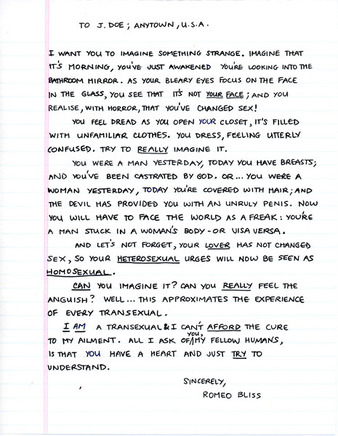 TO J. DOE; ANYTOWN, U.S.A.
I WANT YOU TO IMAGINE SOMETHING STRANGE. IMAGINE THAT
IT'S MORNING, YOU'VE JUST AWAKENED YOU'RE LOOKING INTO THE
BATHROOM MIRROR. AS YOUR BLEARY EYES FOCUS ON THE FACE
IN THE GLASS, YOU SEE THAT IT'S NOT YOUR FACE; AND YOU
REALISE, WITH HORROR, THAT YOU'VE CHANGED SEX!
YOU FEEL DREAD AS YOU OPEN YOUR CLOSET, IT'S FILLED
WITH UNFAMILIAR CLOTHES. YOU DRESS, FEELING UTTERLY
CONFUSED. TRY TO REALLY IMAGINE IT.
YOU WERE A MAN YESTERDAY, TODAY YOU HAVE BREASTS;
AND YOU'VE BEEN CASTRATED BY GOD. OR... YOU WERE A
WOMAN YESTERDAY, TODAY YOU'RE COVERED WITH HAIR; AND
THE DEVIL HAS PROVIDED YOU WITH AN UNRULY PENIS. NOW
YOU WILL HAVE TO FACE THE WORLD AS A FREAK: YOU'RE
A MAN STUCK IN A WOMAN'S BODY-OR VISA VERSA.
AND LET'S NOT FORGET, YOUR LOVER HAS NOT CHANGED
SEX, SO YOUR HETEROSEXUAL URGES WILL NOW BE SEEN AS
HOMOSEXUAL.
CAN YOU IMAGINE IT? CAN YOU REALLY FEEL THE
ANGUISH? WELL... THIS APPROXIMATES THE EXPERIENCE
OF EVERY TRANSEXUAL.
I AM A TRANSEXUAL & I CAN'T AFFORD THE CURE
TO MY AILMENT. ALL I ASK OF YOU, MY FELLOW HUMANS,
IS THAT YOU HAVE A HEART AND JUST TRY TO
UNDERSTAND.
SINCERELY,
ROMEO BLISS